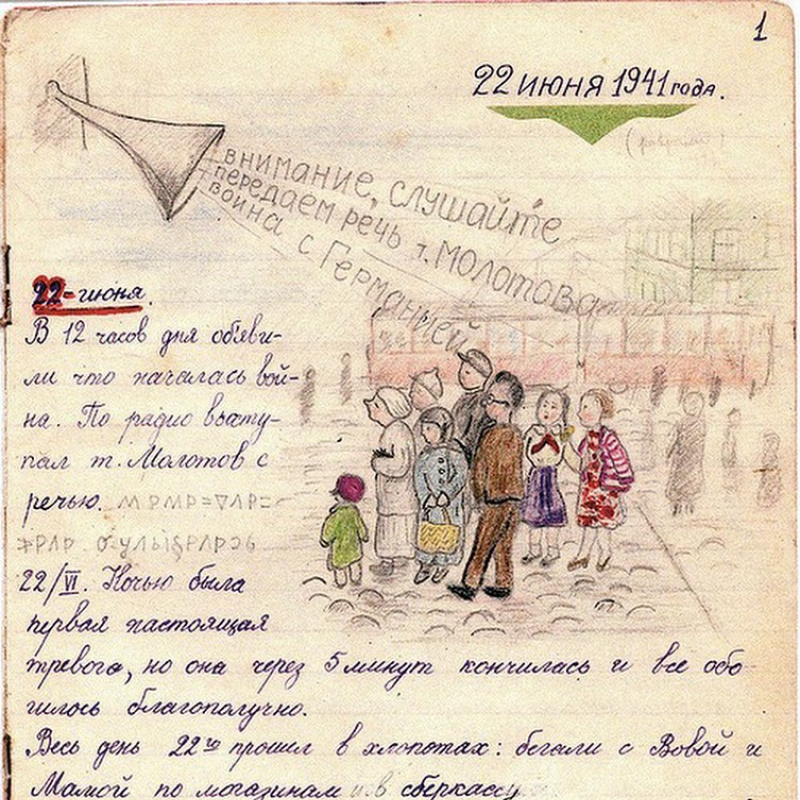 1
22 июня 1941 года.
внимание, слушайте
передаем речь т. Молотова
война с Германией
22-июня.
В 12 часов дня объяви-
ли что началась вой-
на. По радио высту-
пал т. Молотов с
речью.
22/VI. Ночью была
первая настоящая
тревога, но она через 5 минут кончилась и все обо-
шлось благополучно.
Весь день 22го прошел в хлопотах: бегали с Вовой и
Мамой по магазинам и в сберкассу